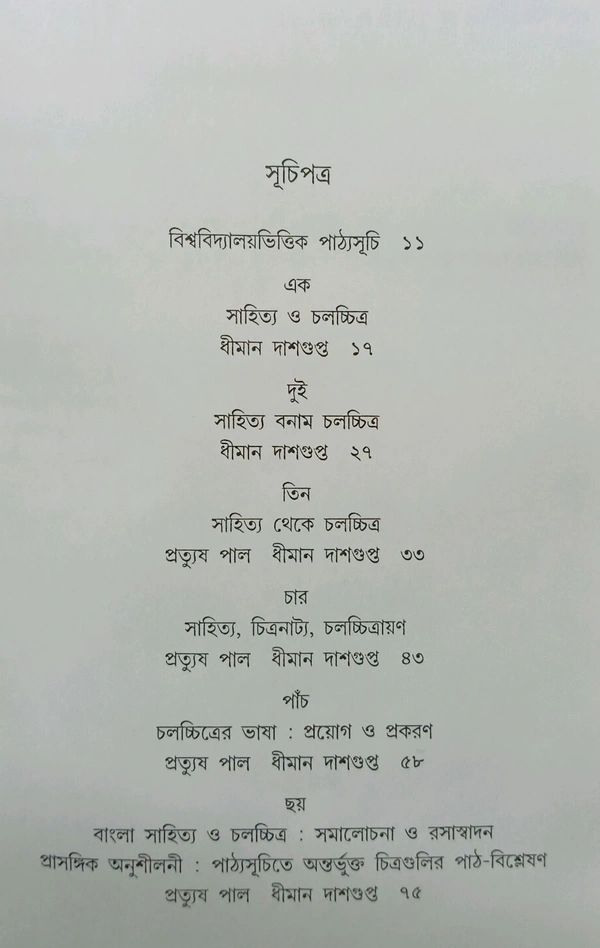 সূচিপত্র
বিশ্ববিদ্যালয়ভিত্তিক পাঠ্যসূচি ১১
এক
সাহিত্য ও চলচ্চিত্র
ধীমান দাশগুপ্ত ১৭
দুই
সাহিত্য বনাম চলচ্চিত্র
ধীমান দাশগুপ্ত ২৭
তিন
সাহিত্য থেকে চলচ্চিত্র
প্রত্যুষ পাল ধীমান দাশগুপ্ত ৩৩
চার
সাহিত্য, চিত্রনাট্য, চলচ্চিত্রায়ণ
প্রত্যুষ পাল ধীমান দাশগুপ্ত ৪৩
পাঁচ
চলচ্চিত্রের ভাষা : প্রয়োগ ও প্রকরণ
প্রত্যুষ পাল ধীমান দাশগুপ্ত ৫৮
ছয়
বাংলা সাহিত্য ও চলচ্চিত্র : সমালোচনা ও রসাস্বাদন
প্রাসঙ্গিক অনুশীলনী : পাঠ্যসূচিতে অন্তর্ভুক্ত চিত্রগুলির পাঠ-বিশ্লেষণ
প্রত্যুষ পাল ধীমান দাশগুপ্ত ৭৫